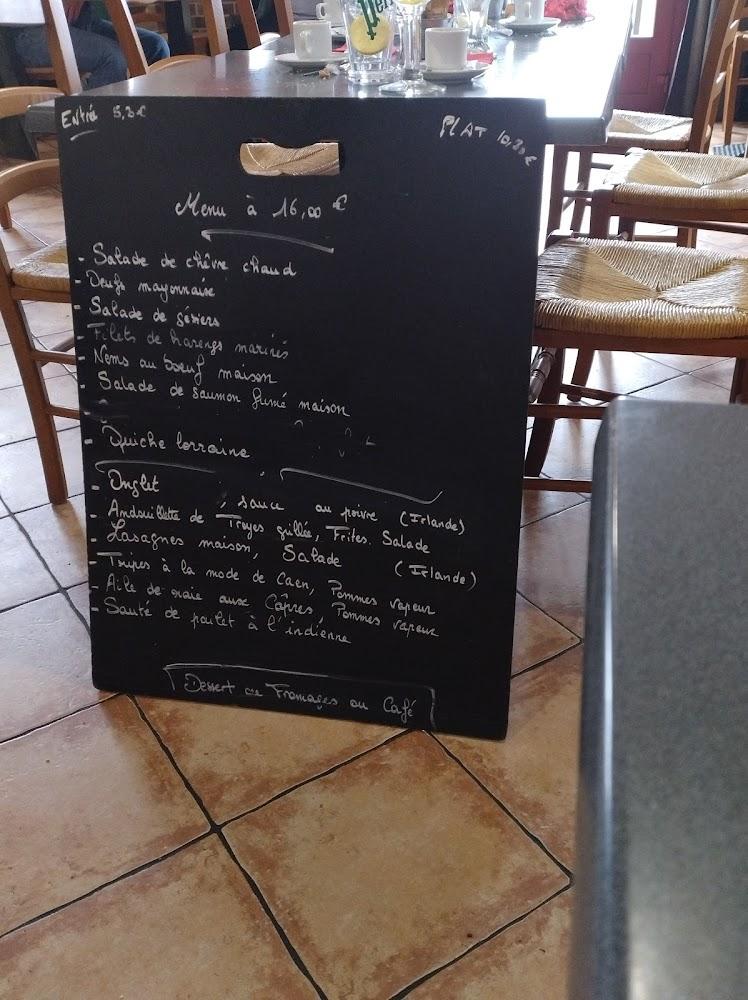 Entré 5,30€
PLAT 10,80€
Menu à 16,00 €
- Salade de chêvre chaud
- Oeufs mayonnaise
- Salade de gésiers
- Filets de harengs marinés
- Nems au boeuf maison
- Salade de saumon fumé maison
- Quiche lorraine
- Onglet , sauce au poivre (Irlande)
- Andouillette de Troyes grillée, Frites. Salade
- Lasagnes maison, Salade (Irlande)
- Tripes à la mode de Caen, Pommes vapeur
- Aile de raie aux Câpres, Pommes vapeur
- Sauté de poulet à l'indienne
Dessert ou Fromages ou Café